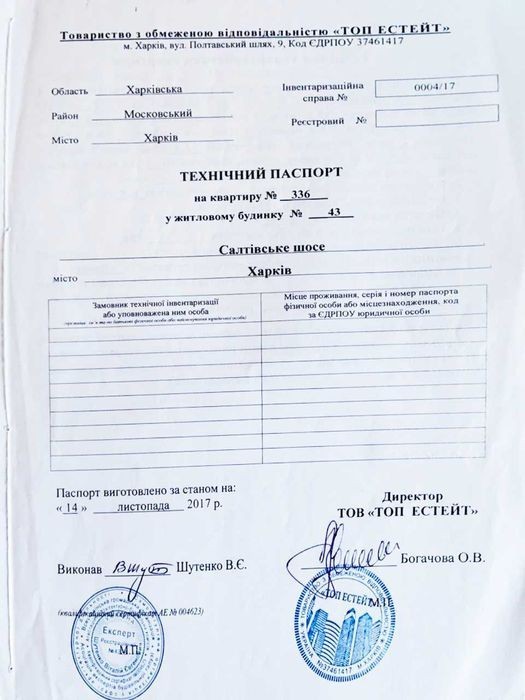 Товариство з обмеженою відповідальністю «ТОП ЕСТЕЙТ»
м. Харків, вул. Полтавський шлях, 9, Код ЄДРПОУ 37461417
Область Харківська
Інвентаризаційна справа № 0004/17
Район Московський
Реєстровий №
Місто Харків
ТЕХНІЧНИЙ ПАСПОРТ
на квартиру № 336
у житловому будинку № 43
Салтівське шосе
місто Харків
Замовник технічної інвентаризації
або уповноважена ним особа
Місце проживання, серія і номер паспорта
фізичної особи або місцезнаходження, код
за ЄДРПОУ юридичної особи
Паспорт виготовлено за станом на:
« 14 » листопада 2017 р.
Директор
ТОВ «ТОП ЕСТЕЙТ»
Виконав Шутенко В.Є.
Богачова О.В.
АЕ № 004623)
Експерт
М.П.
ТОП ЕСТЕЙТ
М.П.
№37461417